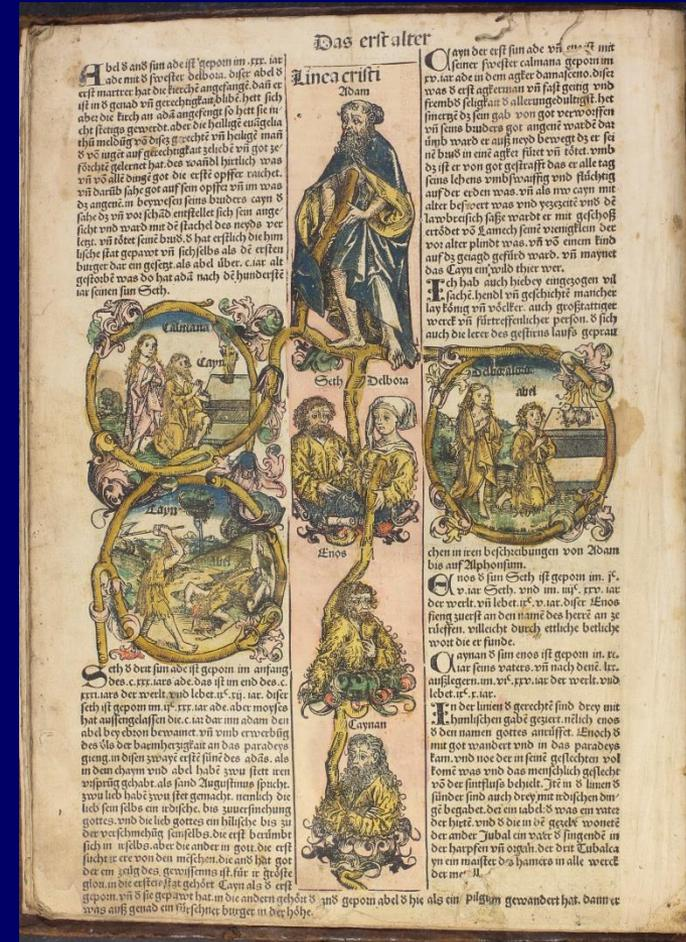 Das erst alter
Abel d and sun ade ist geporn im .xxx. iar
ade mit d swester delbora. diser abel d
erst martrer hat die kirchē angefangē. dañ er
ist in d genad vñ gerechtigkait blibē. hett sich
aber die kirch an adā angefengt so hett sie ni/
cht stetigs gewerdt. aber die heilligē euāgelia
thū meldūg vō disez gerechtē vñ heiligē mañ
d vō iugēt auf gerechtigkait zeliebē vñ got ze/
förchtē gelernet hat. des wañdl hirtlich was
vñ vō alle dingē got die erstē opffer raichet.
vñ darūb sahe got auf sein opffer vñ im was
dz angenē. in beywesen seins bruders cayn d
sahe dz vñ vor schād entstellet sich sein ange/
sicht vnd ward mit dē stachel des neyds ver
letzt. vñ tötet seinē brud. d hat erstlich die him
lische stat gepawt vñ sichselbs als dē ersten
burger dar ein gesetzt. als abel über .c. iar alt
gestorbē was do hat adā nach dē hundertstē
iar seinen sun Seth.
Calmana
Cayn
Cayn
Abel
Seth d drit sun ade ist geporn im anfang
des .c.xxx. iars ade. das ist im end des .c.
xxxi. iars der werlt. vnd lebet .ixᶜ. xij. iar. diser
seth ist geporn im .ijᶜ. xxx. iar ade. aber moyses
hat aussengelassen die .c. iar dar inn adam den
abel bey ebron bewainet. vñ vmb erwerbūg
des öls der barmherzigkait an das paradeys
gieng. in disen zwayē erstē sünē des adās. als
in dem chaym vnd abel habē zwu stett iren
vrsprūg gehabt. als sand Augustinus spricht.
zwu lieb habē zwu stet gemacht. nemlich die
lieb sein selbs ein irdische. bis zuuersinehung
gottes. vnd die lieb gottes ein hilische bis zu
der verschmehūg seinselbs. die erst berümbt
sich in irselbs. aber die ander in gott. die erst
sucht ir ere von den mēschen. die and hat got
der ein zeūg des gewissenns ist. für ir gröste
glori. in die ersten stat gehört Cayn als d erst
geporn. vñ d sie gepawt hat. in die andern gehört d and geporn abel d hie als ein pilgrim gewandert hat. dann er
was auß genad ein fürsehner burger in der höhe.
Linea cristi
Adam
Seth Delbora
Enos
Caynan
Cayn der erst sun ade vñ mit
seiner swester calmana geporn im
xv. iar ade in dem agker damasceno. diser
was d erst agkerman vñ fast geitig vnd
frembd seligkait d allerungedultigst. het
smertzē dz sein gab von got verworffen
vñ seins bruders got angenē wardē dat
ümb ward er auß neyd bewegt dz er sei
nē brud in einē agker füret vñ tötet. vmb
dz ist er von got gestrafft das er alle tag
seins lebens vmbswaiffig vnd flüchtig
auf der erden was. vñ als nw cayn mit
alter beswert was vnd yezezeitē vnd dē
lawbreisch saße wardt er mit geschoß
ertödet vō Lamech seinē vrenigklein der
vor alter plindt was. vñ vō einem kind
auf dz geiagd gefürd ward. vñ maynet
das Cayn ein wild thier wer.
Ich hab auch hiebey eingezogen vil
sachē. hendl vñ geschichtē mancher
lay könig vñ völcker. auch großtattiger
werck vñ fürtreffenlicher person. d sich
auch die lerer des gestirns laufs geprau
abel
chen in iren beschreibungen von Adam
bis auf Alphonsum.
Enos d sun Seth ist geporn im .jᶜ.
v. iar Seth. vnd im .iiijᶜ. xxv. iar
der werlt. vñ lebet .ixᶜ. v. iar. diser Enos
fieng zuerst an den namē des herrē an ze
rüeffen. villeicht durch ettliche betliche
wort die er funde.
Caynan d sun enos ist geporn in .xc.
iar seins vaters. vñ nach denē .lxx.
außlegern. im .vjᶜ. xxv. iar der werlt. vnd
lebet .ixᶜ. x. iar.
In der linien d gerechtē sind drey mit
himlischen gabē geziert. nēlich enos
d den namen gottes anrüfft. Enoch d
mit got wandert vnd in das paradeys
kam. vnd noe der in seinē geslechten vol
komē was vnd das menschlich geslecht
vō der sintfluß behielt. Itē in d linien d
sünder sind auch drey mit irdischen din/
gē begabet. der ein iabel. d was ein vater
der hirtē. vnd d die in dē gezelt wonetē
der ander Jubal ein vater d singendē in
der harpffen vñ orgāln. der drit Tubalca
yn ein maister d hamers in alle werck